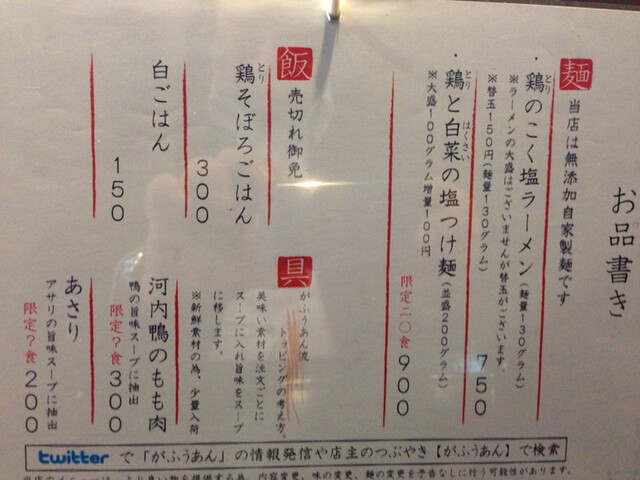 お品書き
麺 当店は無添加自家製麺です
・鶏のこく塩ラーメン(麺量130グラム) 750
※ラーメンの大盛はございませんが替玉がございます。
※替玉150円(麺量130グラム)
・鶏と白菜の塩つけ麺(並盛200グラム) 900
※大盛100グラム増量100円
限定二〇食
飯 売切れ御免
鶏そぼろごはん 300
白ごはん 150
具 がふうあん流
トッピングの考え方。
美味い素材を注文ごとに
スープに入れ旨味をスープ
に移します。
※新鮮素材の為、少量入荷
河内鴨のもも肉 300
鴨の旨味スープに抽出
限定?食
あさり 200
アサリの旨味スープに抽出
限定?食
twitter で「がふうあん」の情報発信や店主のつぶやき【がふうあん】で検索
内容変更、味の変更、麺の変更を予告なしに行う可能性があります。